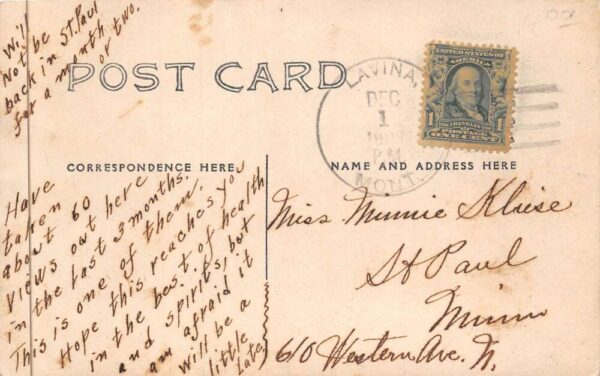 Will
Not be
back in St. Paul
for a month
or two.
POST CARD
LAVINA,
DEC
1
P.M.
MONT.
UNITED STATES OF
AMERICA
FRANKLIN
1 1
POSTAGE
ONE CENT
CORRESPONDENCE HERE
NAME AND ADDRESS HERE
Have
taken
about 60
views out here
in the last 3 months.
This is one of them.
Hope this reaches you
in the best of health
and spirits, but
am afraid it
will be a
little
late.
Miss Minnie Kliese
St Paul
Minn
610 Western Ave. N.